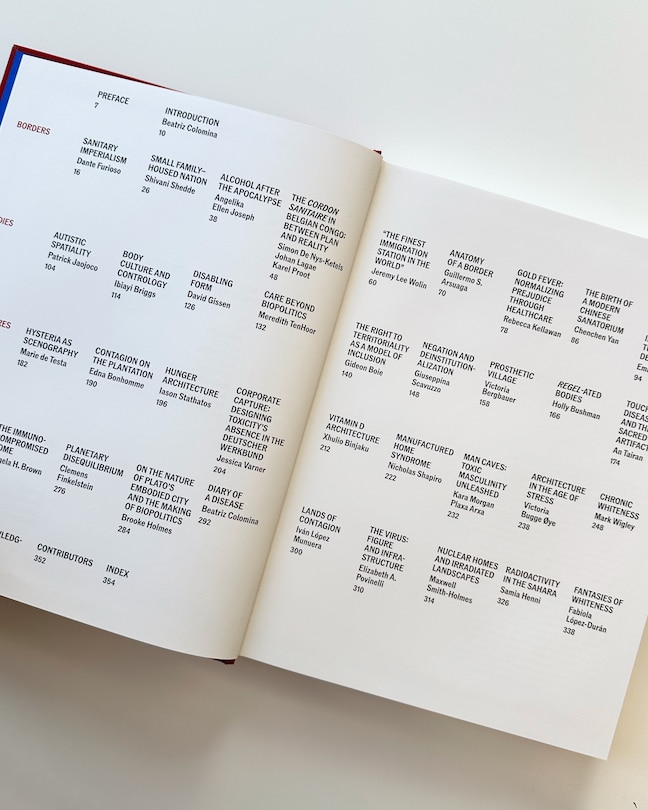 PREFACE
7
INTRODUCTION
Beatriz Colomina
10
BORDERS
SANITARY
IMPERIALISM
Dante Furioso
16
SMALL FAMILY–
HOUSED NATION
Shivani Shedde
26
ALCOHOL AFTER
THE APOCALYPSE
Angelika
Ellen Joseph
38
THE CORDON
SANITAIRE IN
BELGIAN CONGO:
BETWEEN PLAN
AND REALITY
Simon De Nys-Ketels
Johan Lagae
Karel Proot
48
"THE FINEST
IMMIGRATION
STATION IN THE
WORLD"
Jeremy Lee Wolin
60
ANATOMY
OF A BORDER
Guillermo S.
Arsuaga
70
GOLD FEVER:
NORMALIZING
PREJUDICE
THROUGH
HEALTHCARE
Rebecca Kellawan
78
THE BIRTH OF
A MODERN
CHINESE
SANATORIUM
Chenchen Yan
86
94
DIES
AUTISTIC
SPATIALITY
Patrick Jaojoco
104
BODY
CULTURE AND
CONTROLOGY
Ibiayi Briggs
114
DISABLING
FORM
David Gissen
126
CARE BEYOND
BIOPOLITICS
Meredith TenHoor
132
THE RIGHT TO
TERRITORIALITY
AS A MODEL OF
INCLUSION
Gideon Boie
140
NEGATION AND
DEINSTITUTION-
ALIZATION
Giuseppina
Scavuzzo
148
PROSTHETIC
VILLAGE
Victoria
Bergbauer
158
REGEL-ATED
BODIES
Holly Bushman
166
TOUCH
DISEAS
AND TH
SACRED
ARTIFAC
An Tairan
174
RES
HYSTERIA AS
SCENOGRAPHY
Marie de Testa
182
CONTAGION ON
THE PLANTATION
Edna Bonhomme
190
HUNGER
ARCHITECTURE
Iason Stathatos
196
CORPORATE
CAPTURE:
DESIGNING
TOXICITY'S
ABSENCE IN THE
DEUTSCHER
WERKBUND
Jessica Varner
204
VITAMIN D
ARCHITECTURE
Xhulio Binjaku
212
MANUFACTURED
HOME
SYNDROME
Nicholas Shapiro
222
MAN CAVES:
TOXIC
MASCULINITY
UNLEASHED
Kara Morgan
Plaxa Arxa
232
ARCHITECTURE
IN THE AGE OF
STRESS
Victoria
Bugge Øye
238
CHRONIC
WHITENESS
Mark Wigley
248
THE IMMUNO-
OMPROMISED
OME
ela H. Brown
PLANETARY
DISEQUILIBRIUM
Clemens
Finkelstein
276
ON THE NATURE
OF PLATO'S
EMBODIED CITY
AND THE MAKING
OF BIOPOLITICS
Brooke Holmes
284
DIARY OF
A DISEASE
Beatriz Colomina
292
LANDS OF
CONTAGION
Iván López
Munuera
300
THE VIRUS:
FIGURE
AND INFRA-
STRUCTURE
Elizabeth A.
Povinelli
310
NUCLEAR HOMES
AND IRRADIATED
LANDSCAPES
Maxwell
Smith-Holmes
314
RADIOACTIVITY
IN THE SAHARA
Samia Henni
326
FANTASIES OF
WHITENESS
Fabiola
López-Durán
338
WLEDG-
CONTRIBUTORS
352
INDEX
354